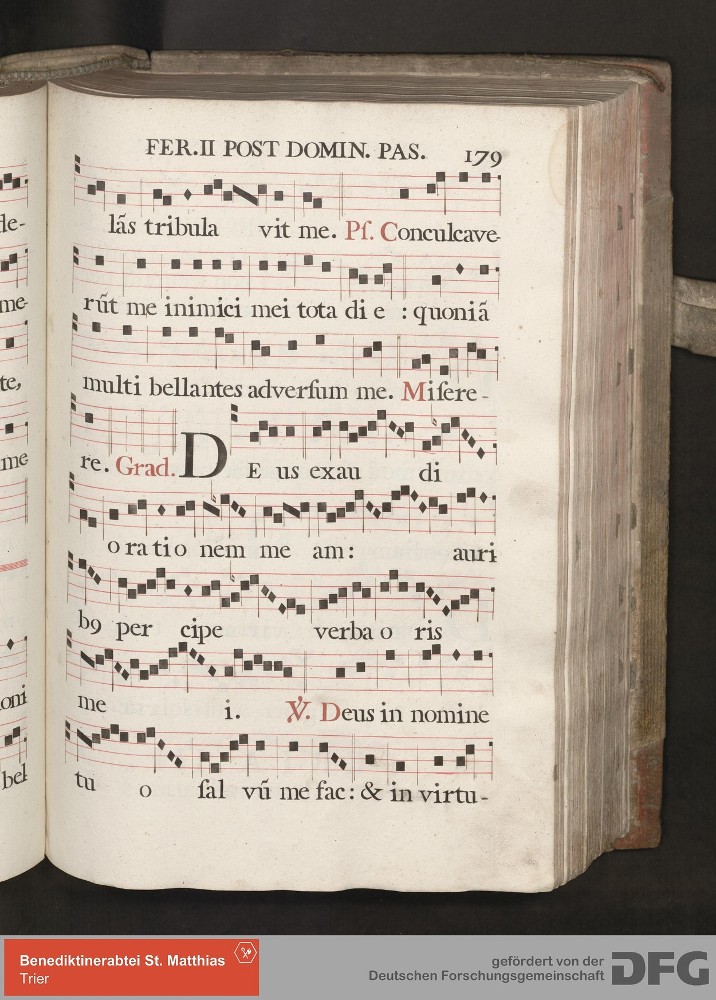 FER.II POST DOMIN. PAS. 179
lãs tribula vit me. Pſ. Conculcave-
rũt me inimici mei tota die : quoniã
multi bellantes adverſum me. Miſere-
re. Grad. DEus exau di
oratio nem me am: auri
bꝯ per cipe verba o ris
me i. ℣. Deus in nomine
tu o ſal vũ me fac: & in virtu-
de-
me-
te,
me
oni
bel
Benediktinerabtei St. Matthias
Trier
gefördert von der
Deutschen Forschungsgemeinschaft
DFG